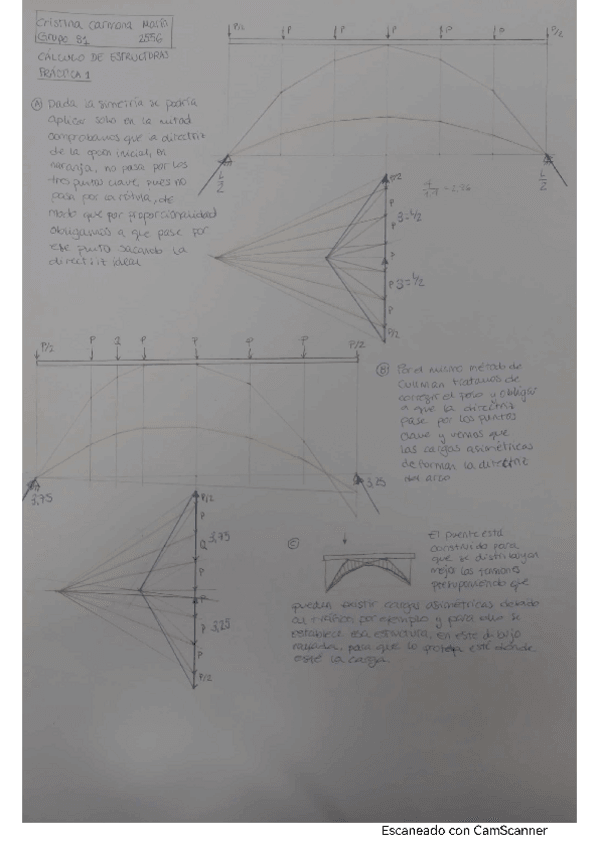 Cristina Carmona Macía
Grupo 31 2556
CÁLCULO DE ESTRUCTURAS
PRÁCTICA 1
P/2 P P P P P P/2
A Dada la simetría se podría
aplicar solo en la mitad
comprobamos que a directriz
de la inicial, en
naranja, no pasa por los
tres puntos clave, pues no
pasa por la rótula, de
modo que por proporcionalidad
obligamos a que pase por
ese punto sacando la
directriz ideal
L/2 L/2
P
P
3=L/2
P
P
3=L/2
P
P/2
P/2 P Q P P P P P/2
B Por el mismo método de
Cullman tratamos de
corregir el peso y obligar
a que la directriz
pase por los puntos
clave y vemos que
las cargas asimétricas
deforman la directriz
del arco
3,75 3,25
P/2
P
Q 3,75
P
P
P 3,25
P
P/2
C El puente está
construido para
que se distribuyan
mejor las tensiones
presuponiendo que
pueden existir cargas asimétricas debido
por ejemplo y para ello se
establece esa estructura, en este dibujo
rayada, para que lo proteja esté donde
esté la carga.
Escaneado con CamScanner